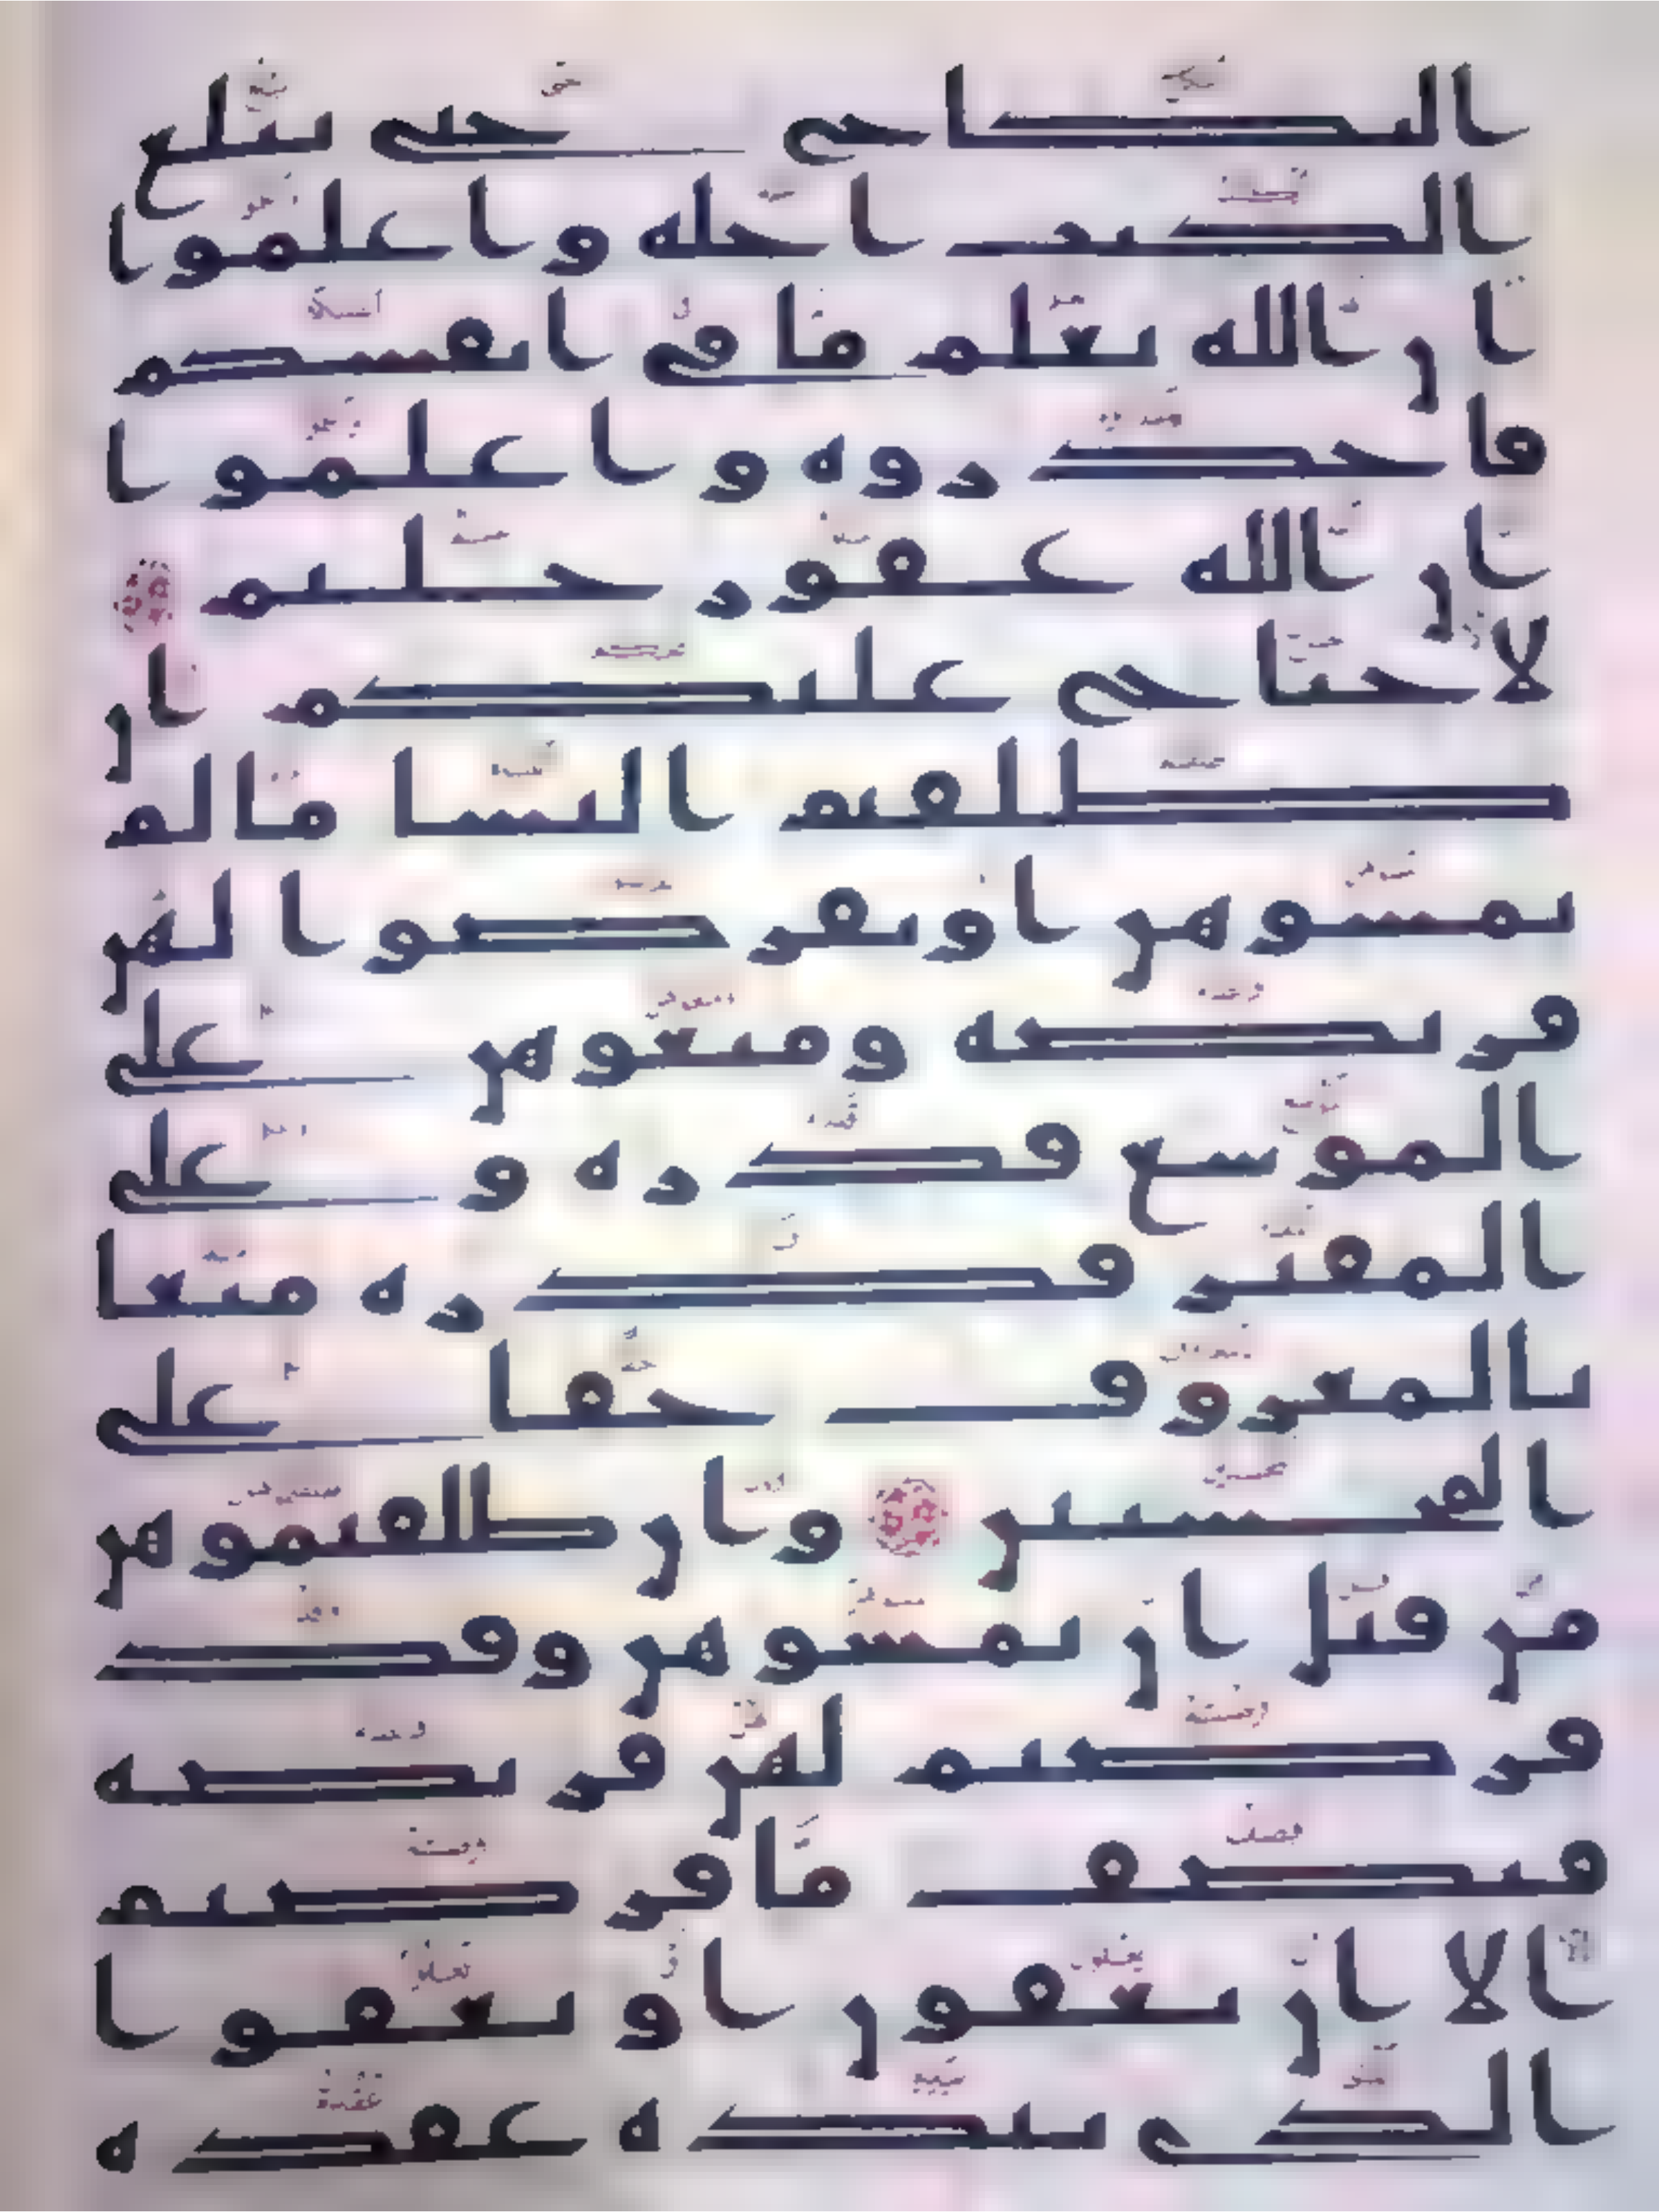 النكاح حتى يبلغ
الكتب اجله واعلموا
ان الله يعلم ما في انفسكم
فاحذروه واعلموا
ان الله غفور حليم
لا جناح عليكم ان
طلقتم النسا ما لم
تمسوهن او تفرضوا لهن
فريضه ومتعوهن على
الموسع قدره و على
المقتر قدره متعا
بالمعروف حقا على
المحسنين وان طلقتموهن
من قبل ان تمسوهن وقد
فرضتم لهن فريضه
فنصف ما فرضتم
الا ان يعفون او يعفوا
الذي بيده عقده